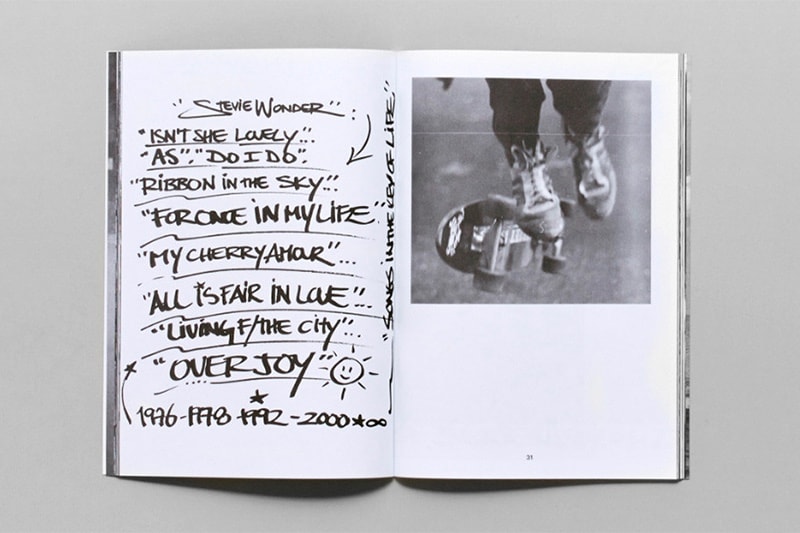 "STEVIE WONDER":
"ISN'T SHE LOVELY"...
"AS". "DO I DO".
"RIBBON IN THE SKY"...
"FOR ONCE IN MY LIFE".
"MY CHERRY AMOUR"...
"ALL IS FAIR IN LOVE"...
"LIVING F/THE CITY"...
"OVER JOY"
1976-1978-1992-2000★∞
"SONGS IN THE KEY OF LIFE"
31